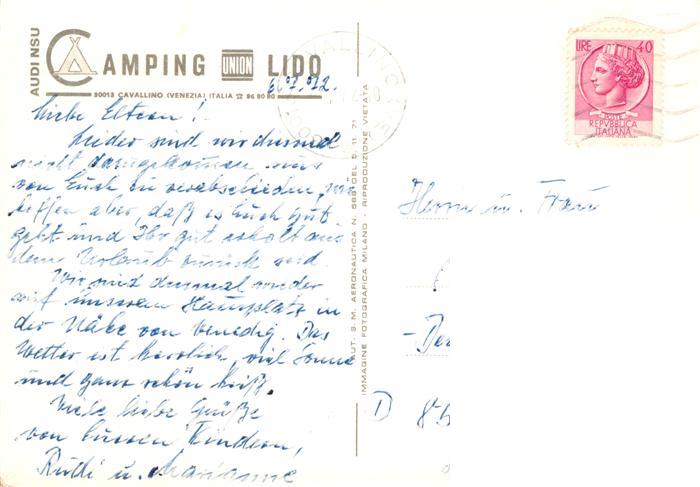 AUDI NSU
CAMPING UNION LIDO
30013 CAVALLINO (VENEZIA) ITALIA ☎ 96 80 80
6.7.72.
Liebe Eltern!
Leider sind wir diesmal
nicht dazugekommen uns
von Euch zu verabschieden, wir
hoffen aber, daß es Euch gut
geht und Ihr gut erholt aus
dem Urlaub zurück seid.
Wir sind diesmal wieder
auf unserem Stammplatz in
der Nähe von Venedig. Das
Wetter ist herrlich, viel Sonne
und ganz schön heiß.
Viele liebe Grüße
von Eueren Kindern,
Rudi u. Marianne
AUT. S. M. AERONAUTICA N. 568 DEL 5. 11. 71
IMMAGINE FOTOGRAFICA MILANO - RIPRODUZIONE VIETATA
LIRE 40
POSTE
REPVBBLICA
ITALIANA
Herrn u. Frau
D 85